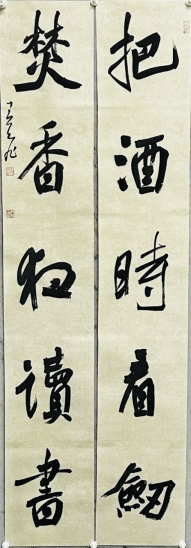 把酒時看劔
焚香夜讀書